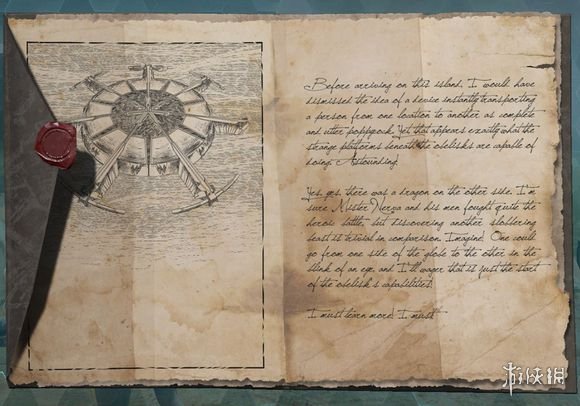 Before arriving on this island, I would have
dismissed the idea of a device instantly transporting
a person from one location to another as complete
and utter poppycock. Yet that appears exactly what the
strange platforms beneath the obelisks are capable of
doing. Astounding!
Yes, yes, there was a dragon on the other side. I'm
sure Mister Nerva and his men fought quite the
heroic battle, but discovering another slobbering
beast is trivial in comparison. Imagine! One could
go from one side of the globe to the other in the
blink of an eye, and I'll wager that is just the start
of the obelisk's capabilities!
I must learn more! I must!
游侠网